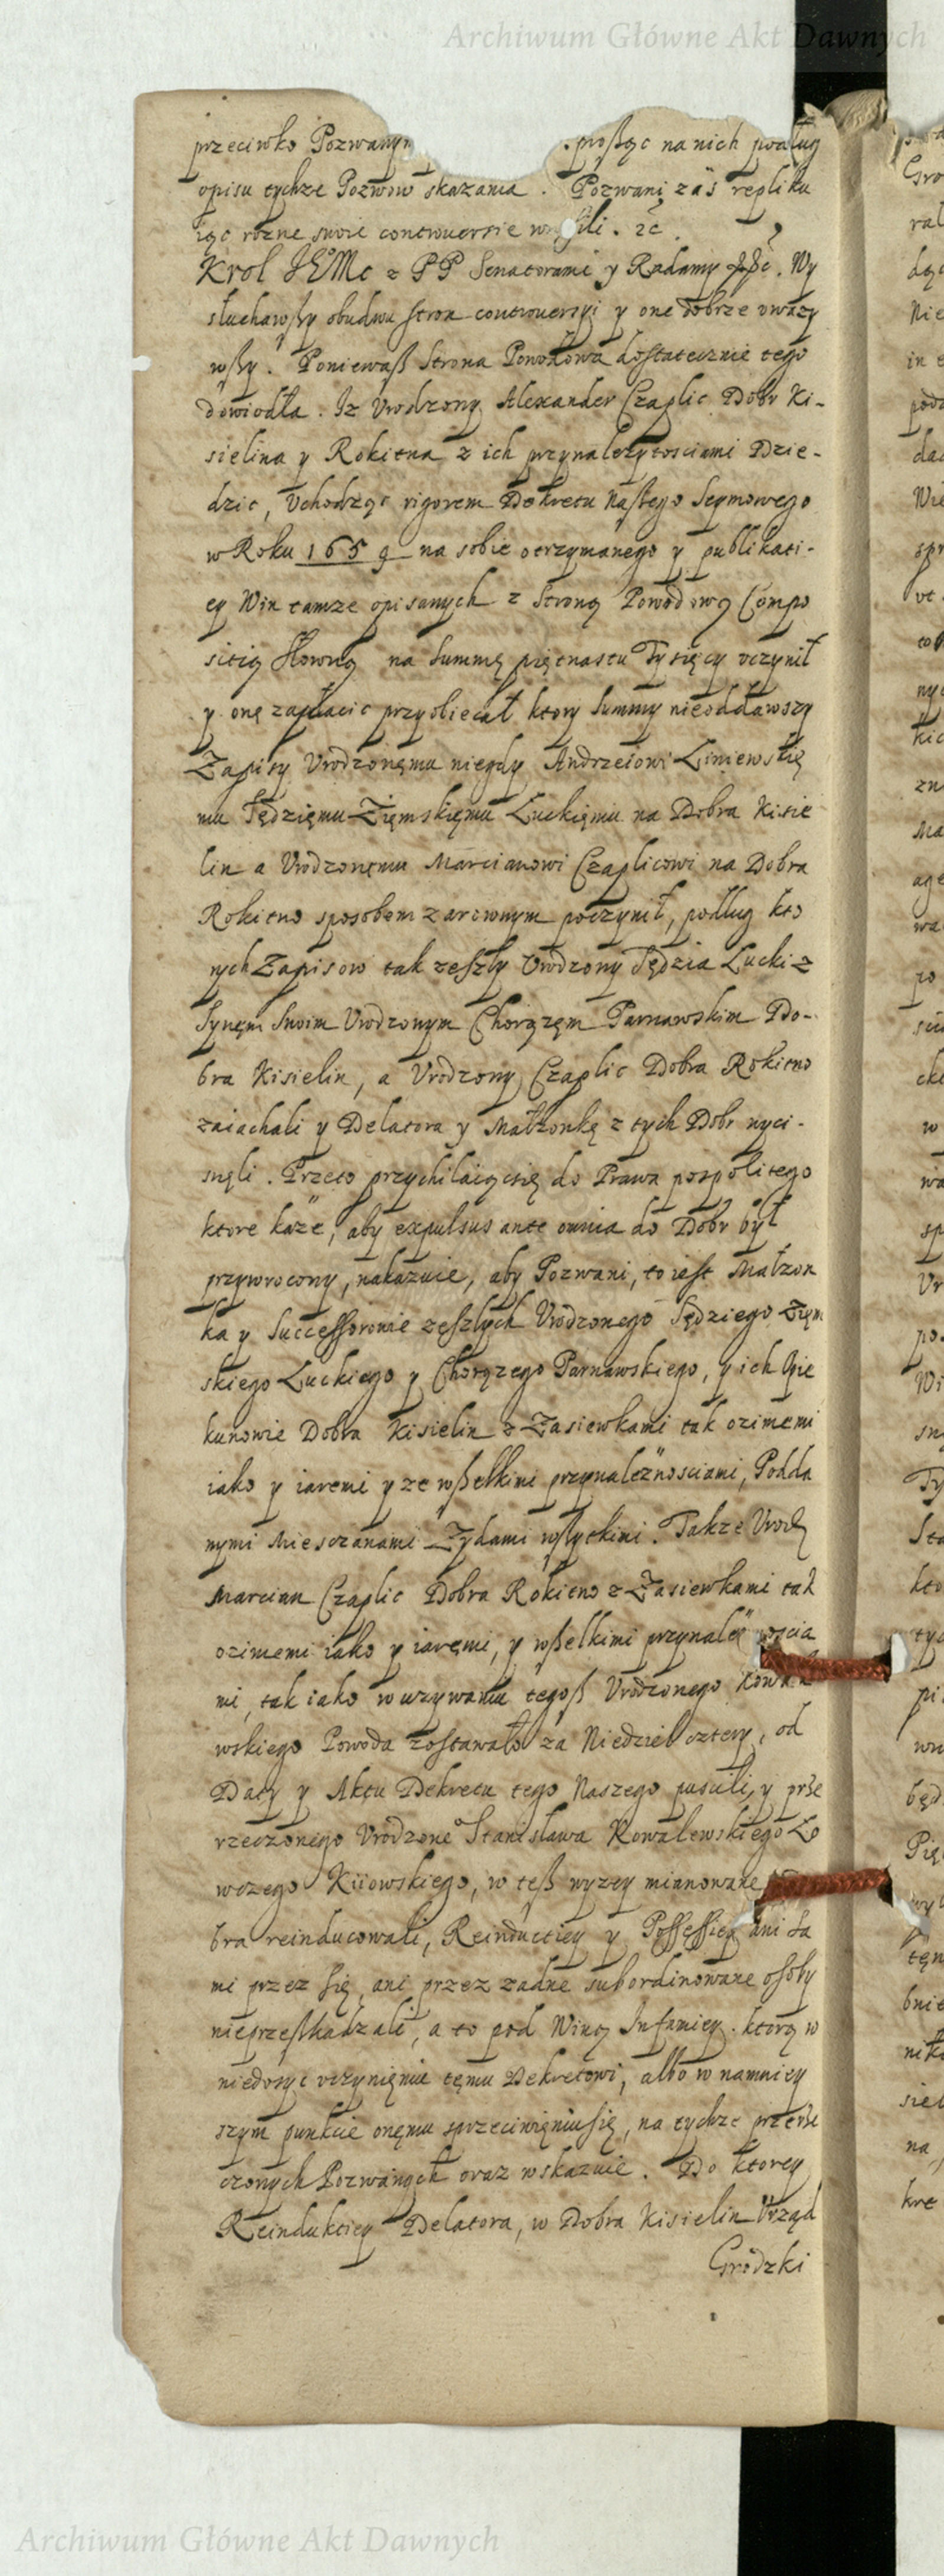 Archiwum Główne Akt Dawnych
przeciwko Pozwanym proßąc na nich podług
opisu tychze Pozwow skazania. Pozwani zaś repliku
iąc rozne swoie controuersie wnosili. &c.
Krol JEMc z PP Senatorami y Radamy &c. Wy
słuchawßy obudwu stron controuersyi y one dobrze uwazy
wßy. Poniewaß Strona Powodowa dostatecznie tego
dowiodła. Iz Vrodzony Alexander Czaplic Dobr Ki-
sielina y Rokitna z ich przynalezytosciami Dzie-
dzic, Vchodząc rigorem Dekretu Naßego Seymowego
w Roku 1659 na sobie otrzymanego y publikati-
ey Win tamze opisanych z Stroną Powodową Compo
sitią słowną na Summę piętnastu Tysięcy vczynił
y onę zapłacic przyobiecał, ktory Summy nieoddawszy
Zapisy Vrodzonęmu niegdy Andrzeiowi Liniewskię
mu Sędzięmu Zięmskięmu Luckięmu na Dobra Kisie
lin a Vrodzonęmu Marcianowi Czaplicowi na Dobra
Rokitno sposobem zarownym poczynił, podług kto
rych Zapisow tak zeszły Vrodzony Sędzia Lucki z
Synęm Swoim Vrodzonym Chorązęm Parnawskim Do-
bra Kisielin, a Vrodzony Czaplic Dobra Rokitno
zaiachali y Delatora y Małzonkę z tych Dobr wyci-
snęli. Przeto przychilaiącsię do Prawa pospolitego
ktore kaze, aby expulsus ante omnia do Dobr był
przywrocony, nakazuie, aby Pozwani, to iest Małzon
ka y Successorowie zeszłych Vrodzonego Sędziego Zięm
skiego Luckiego y Chorązego Parnawskiego, y ich Opie
kunowie Dobra Kisielin z Zasiewkami tak ozimemi
iako y iaremi y ze wßelkimi przynaleznosciami, Podda
nymi Miesczanami Zydami wszytkimi. Takze Vrodz
Marcian Czaplic Dobra Rokitno z Zasiewkami tak
ozimemi iako y iaręmi, y wßelkimi przynaleznoscia
mi, tak iako w uzywaniu tegoß Vrodzonego Kowal
wskiego Powoda zostawało za Niedziel cztery, od
Daty y Aktu Dekretu tego Naszego puscili, y prze
rzeczonego Vrodzone Stanisława Kowalewskiego Lo
wczego Kiiowskiego, w teß wyzey mianowane
bra reinducowali, Reinductiey y Possessiey ani sa
mi przez się, ani przez zadne subordinowane osoby
nieprzeßkadzali, a to pod Winą Infamiey. ktorą w
niedosyc vczynięniu tęmu Dekretowi, albo w namniey
szym punkcie onęmu sprzeciwięniusię, na tychze przerze
czonych Pozwanych oraz wskazuie. Do ktorey
Reinduktiey Delatora, w Dobra Kisielin Vrząd
Grodzki
Archiwum Główne Akt Dawnych